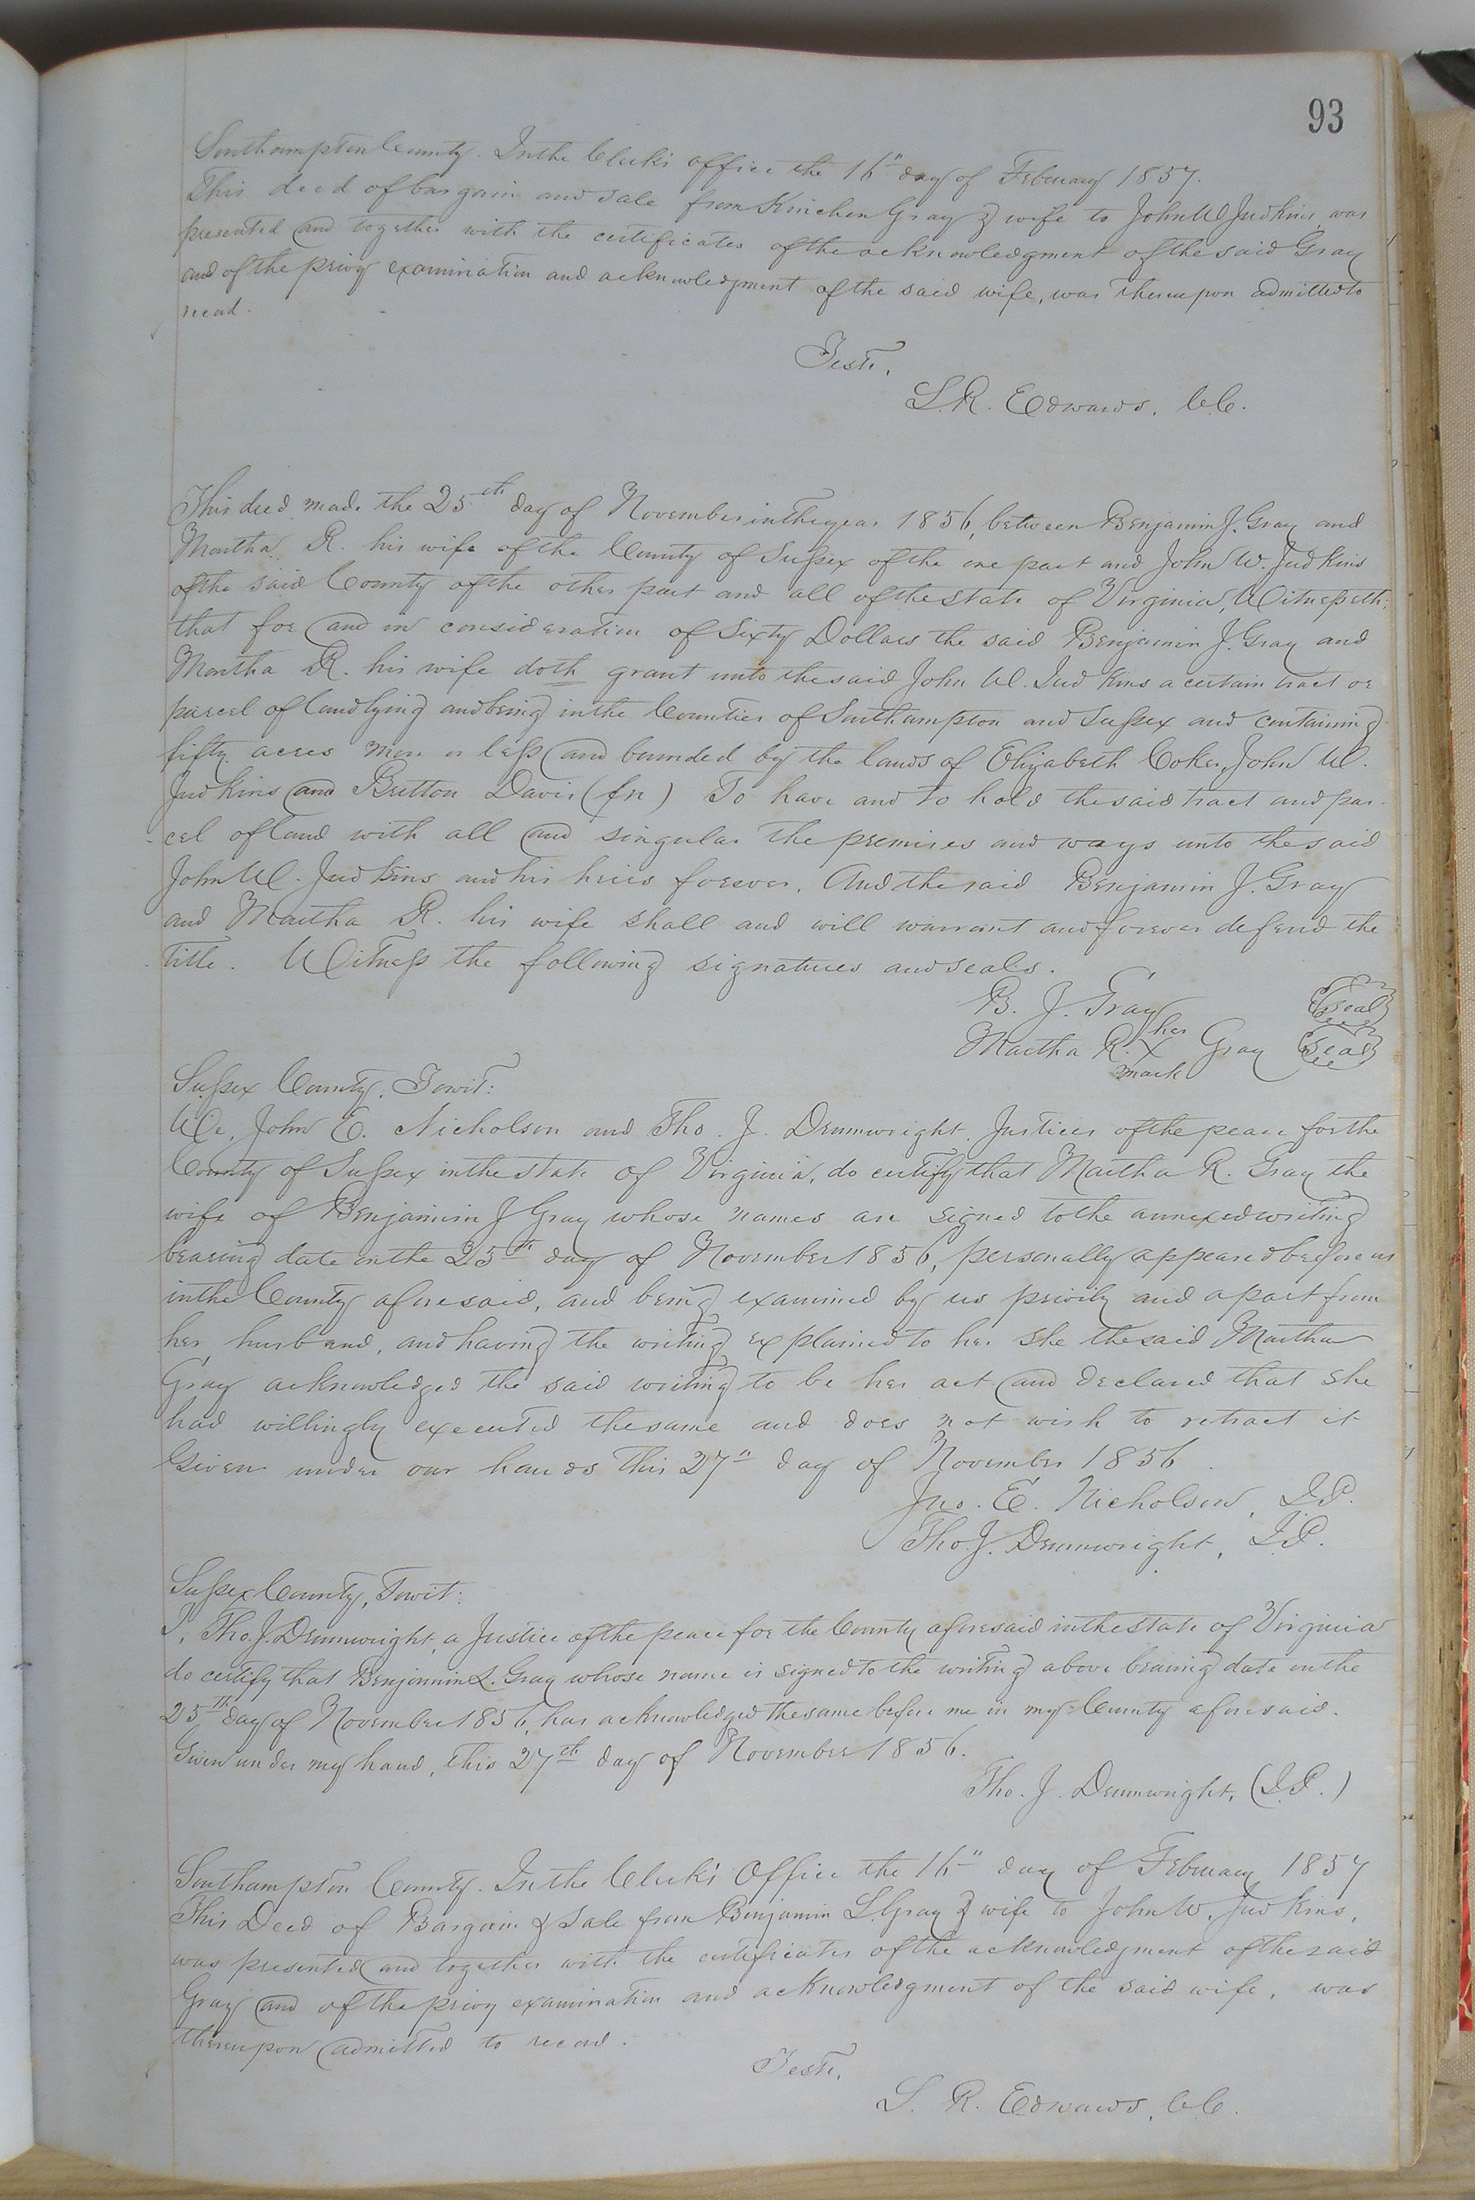 93
Southampton County. In the Clerk's office the 16" day of February 1857.
This deed of bargain and sale from Kinchen Gray & wife to John W Judkins, was
presented and together with the certificates of the acknowledgment of the said Gray
and of the privy examination and acknowledgment of the said wife, was thereupon admitted to
record.
Teste,
L. R. Edwards, C.C.
This deed made the 25th day of November in the year 1856, between Benjamin J. Gray and
Martha R. his wife of the County of Sussex of the one part and John W. Judkins
of the said County of the other part and all of the State of Virginia, Witnesseth:
that for and in consideration of Sixty Dollars the said Benjamin J. Gray and
Martha R. his wife doth grant unto the said John W. Judkins a certain tract or
parcel of land lying and being in the Counties of Southampton and Sussex and containing
fifty acres more or less and bounded by the lands of Elizabeth Coker, John W.
Judkins and Britton Davis (fn) To have and to hold the said tract and par-
cel of land with all and singular the premises and ways unto the said
John W. Judkins and his heirs forever. And the said Benjamin J. Gray
and Martha R. his wife shall and will warrant and forever defend the
title. Witness the following signatures and seals.
B. J. Gray Seal
her
Martha R. X Gray Seal
mark
Sussex County, Towit:
We, John E. Nicholson and Tho. J. Drumwright, Justices of the peace for the
County of Sussex in the State of Virginia, do certify that Martha R. Gray the
wife of Benjamin J Gray whose names are signed to the annexed writing
bearing date on the 25th day of November 1856, personally appeared before us
in the County aforesaid, and being examined by us privily and apart from
her husband, and having the writing explained to her she the said Martha
Gray acknowledged the said writing to be her act and declared that she
had willingly executed the same and does not wish to retract it
Given under our hands this 27" day of November 1856.
Jno. E. Nicholson, J.P.
Tho. J. Drumwright, J.P.
Sussex County, Towit:
I, Tho. J. Drumwright, a Justice of the peace for the County aforesaid in the State of Virginia
do certify that Benjamin L. Gray whose name is signed to the writing above bearing date on the
25th day of November 1856, has acknowledged the same before me in my County aforesaid.
Given under my hand, this 27th day of November 1856.
Tho. J. Drumwright, (J.P.)
Southampton County. In the Clerk's Office the 16" day of February 1857
This Deed of Bargain & Sale from Benjamin L. Gray & wife to John W. Judkins,
was presented and together with the certificates of the acknowledgment of the said
Gray and of the privy examination and acknowledgment of the said wife, was
thereupon admitted to record.
Teste,
L. R. Edwards, C.C.